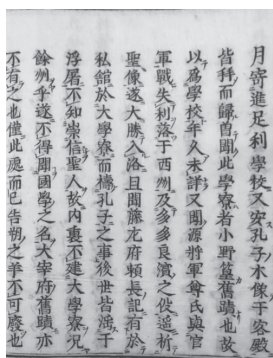 月寄進足利學校又安孔子木像于客殿
皆拜而歸自國此學寮者小野篁舊蹟也故
以為學校年久未詳又聞源將軍尊氏與官
軍戰失利落于西州及多多良濱之役遥祈
聖像遂大勝入洛且聞藤左府賴長記有於
私館於大學寮而禱孔子之事後世皆溺于
浮屠不知崇信聖人故内裏不建大學寮況
餘州乎遂不得聞國學之名大宰府舊蹟亦
不有之也僅此處而已告朔之羊不可廢也